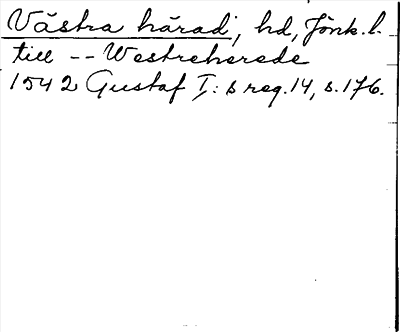 Västra härad, hd, Jönk. l.
till -- Westreherede
1542 Gustaf I:s reg. 14, s. 176.